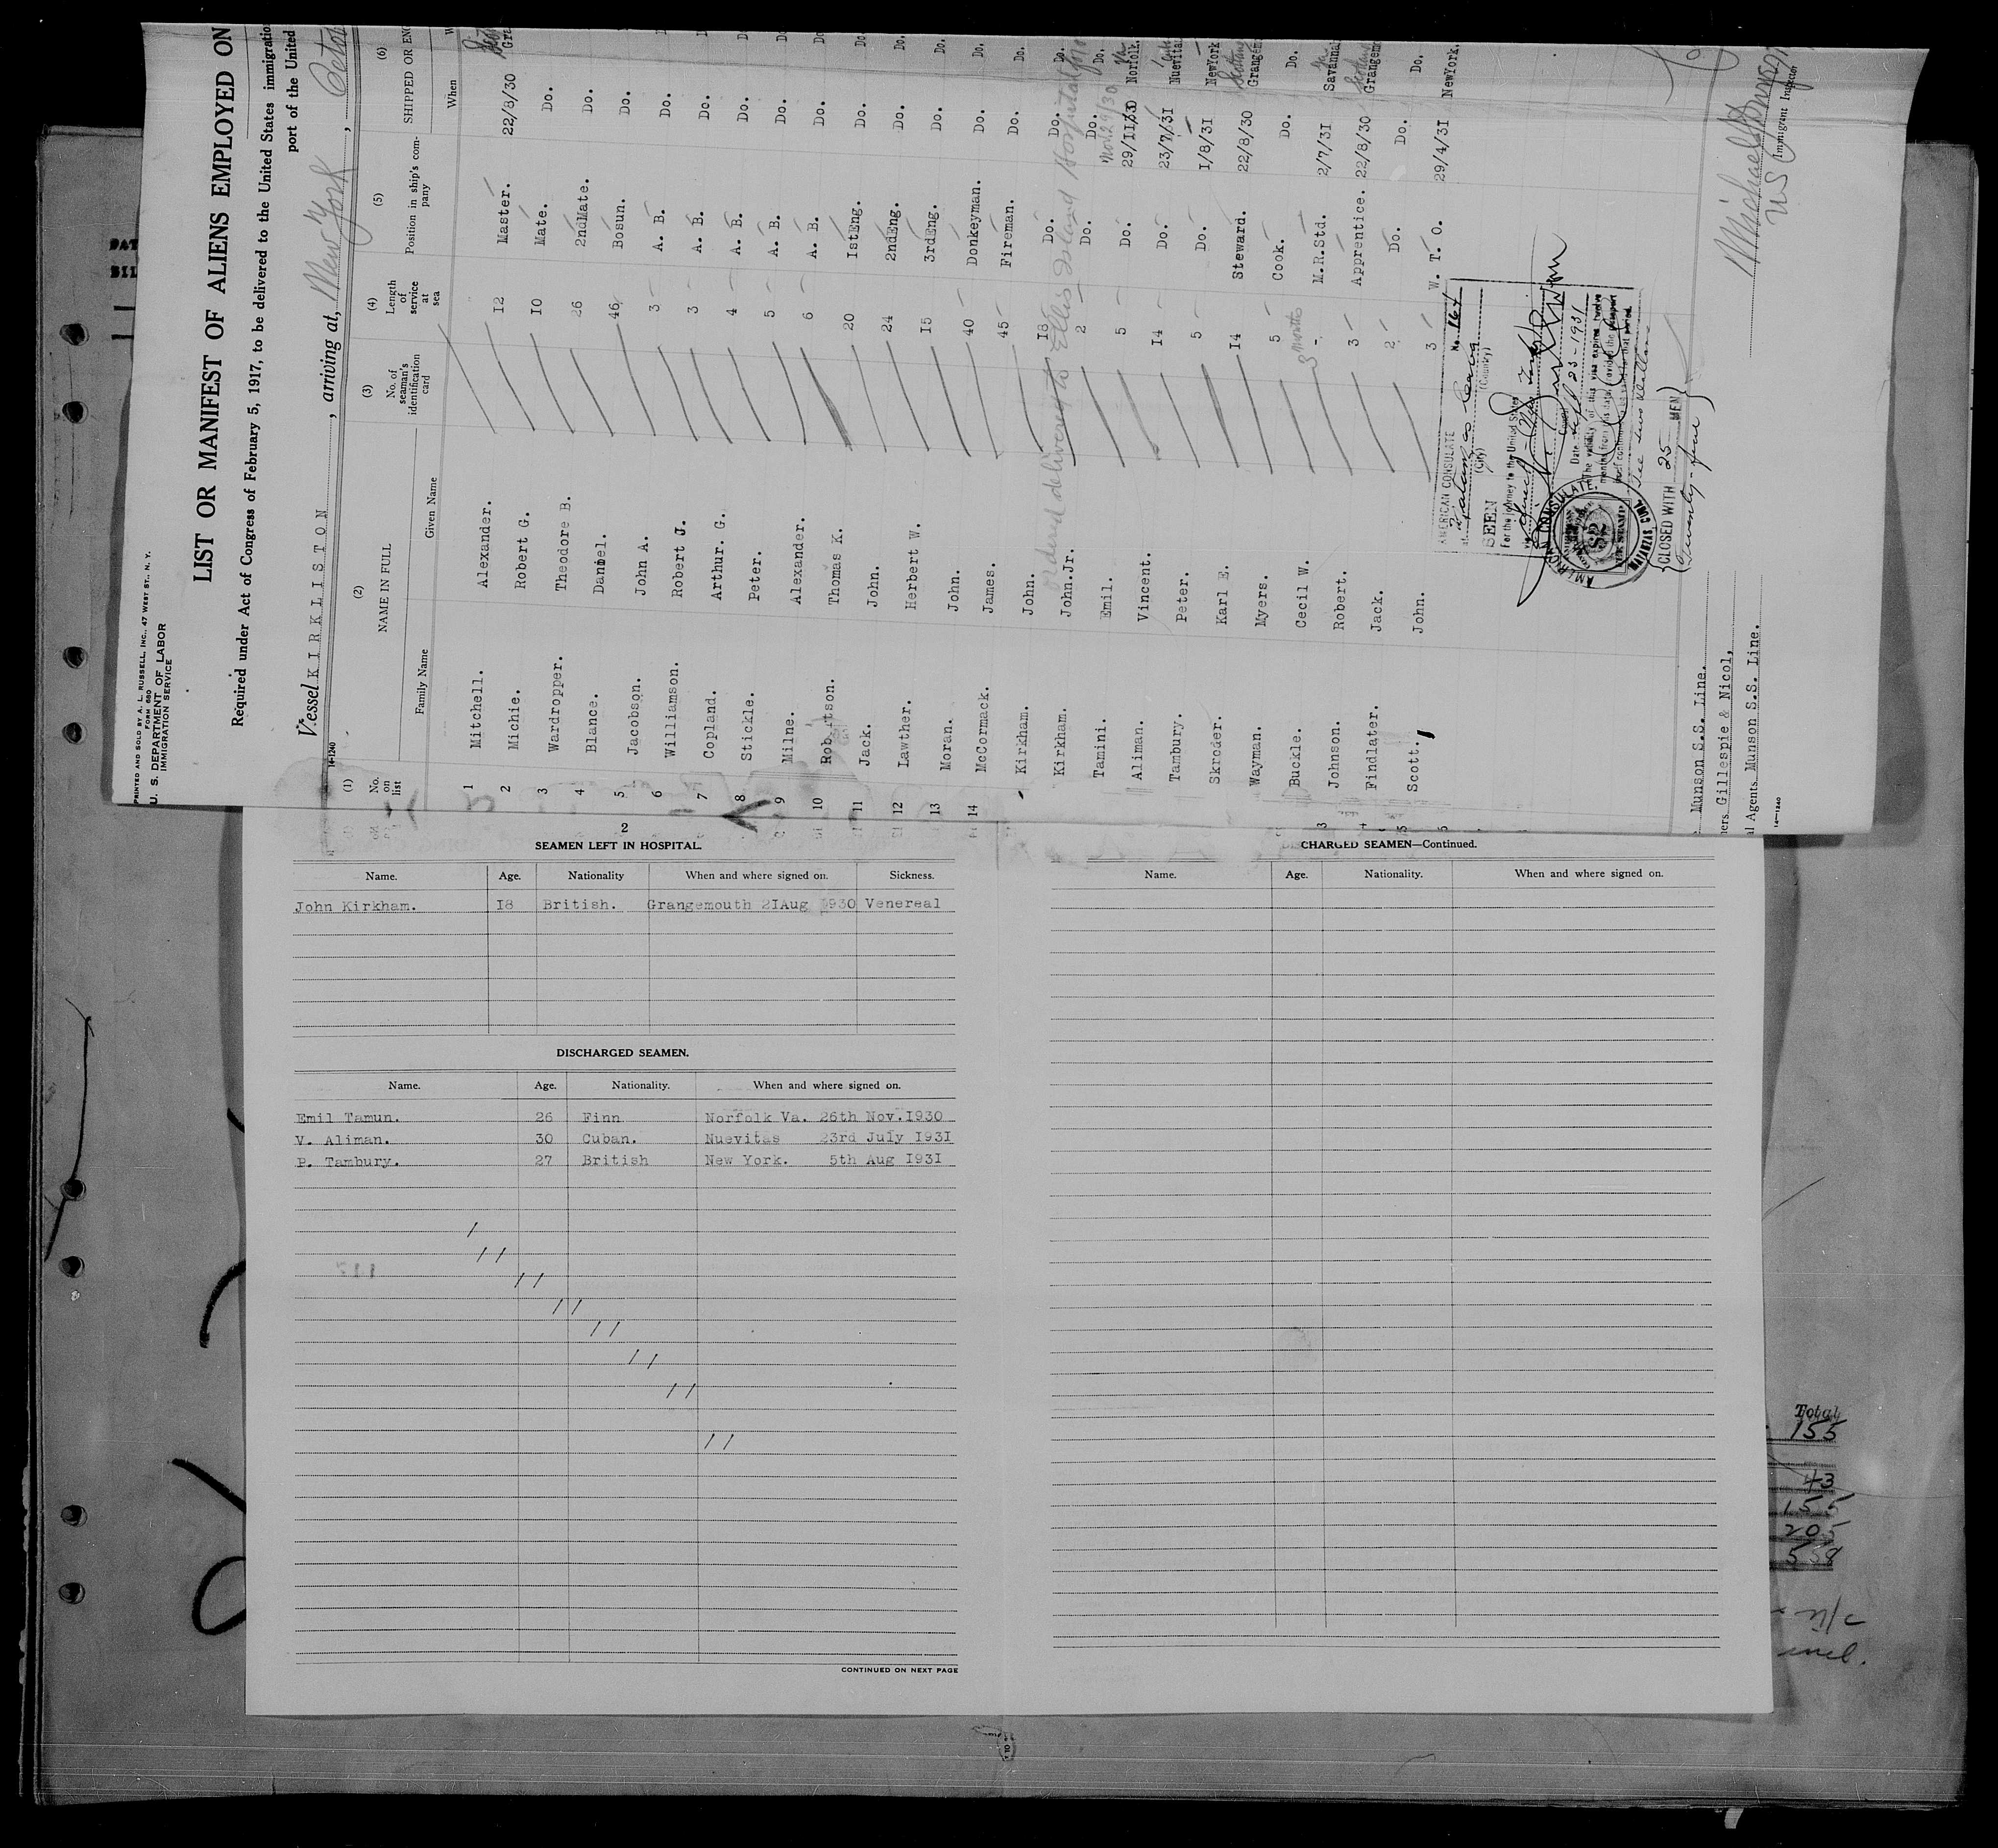 PRINTED AND SOLD BY A. L. RUSSELL, INC., 47 WEST ST., N. Y.
FORM 680
U. S. DEPARTMENT OF LABOR
IMMIGRATION SERVICE
LIST OR MANIFEST OF ALIENS EMPLOYED ON
Required under Act of Congress of February 5, 1917, to be delivered to the United States immigratio
port of the United
Vessel KIRKLISTON , arriving at, New York
14-1240
(1) (2) (3) (4) (5) (6)
No. on list NAME IN FULL No. of seaman's identification card Length of service at sea Position in ship's company SHIPPED OR ENG
Family Name Given Name When
1 Mitchell. Alexander. 12 Master. 22/8/30
2 Michie. Robert G. 10 Mate. Do.
3 Wardropper. Theodore B. 26 2ndMate. Do.
4 Blance. Daniel. 46 Bosun. Do. Do.
5 Jacobson. John A. 3 A. B. Do. Do.
6 Williamson. Robert J. 3 A. B. Do. Do.
7 Copland. Arthur. G. 4 A. B. Do. Do.
8 Stickle. Peter. 5 A. B. Do. Do.
9 Milne. Alexander. 6 A. B. Do. Do.
10 Robertson. Thomas K. 20 IstEng. Do. Do.
11 Jack. John. 24 2ndEng. Do. Do.
12 Lawther. Herbert W. I5 3rdEng. Do. Do.
13 Moran. John. 40 Donkeyman. Do. Do.
14 McCormack. James. 45 Fireman. Do. Do.
Kirkham. John. I8 Do. Do. Do.
Ordered delivered to Ellis Island Hospital
Kirkham. John.Jr. 2 Do. Do. Do.
Tamini. Emil. 5 Do. 29/II/30 Norfolk.
Aliman. Vincent. I4 Do. 23/7/3I Nuevita
Tambury. Peter. 5 Do. I/8/3I NewYork
Skroder. Karl E. I4 Steward. 22/8/30 Grangem
Wayman. Myers. 5 Cook. Do. Do.
Buckle. Cecil W. 3 months M.R.Std. 2/7/3I Savannah
Johnson. Robert. 3 Apprentice. 22/8/30 Grangem
Findlater. Jack. 2 Do. Do. Do.
Scott. John. 3 W. T. O. 29/4/3I NewYork.
AMERICAN CONSULATE
No. 164
(City) (Country)
SEEN
For the journey to the United States
Date
1931
The validity of this visa expires twelve
AMERICAN CONSULATE
CLOSED WITH 25 MEN
Twenty-five
Munson S.S. Line.
ners Gillespie & Nicol,
l Agents Munson S.S. Line.
14-1240
Immigrant Inspector
2
SEAMEN LEFT IN HOSPITAL.
Name. Age. Nationality When and where signed on. Sickness.
John Kirkham. I8 British. Grangemouth 2IAug 1930 Venereal
DISCHARGED SEAMEN.
Name. Age. Nationality. When and where signed on.
Emil Tamun. 26 Finn Norfolk Va. 26th Nov.I930
V. Aliman. 30 Cuban. Nuevitas 23rd July I93I
P. Tambury. 27 British New York. 5th Aug I93I
CONTINUED ON NEXT PAGE
CHARGED SEAMEN—Continued.
Name. Age. Nationality. When and where signed on.
Total
155
43
155
205
558